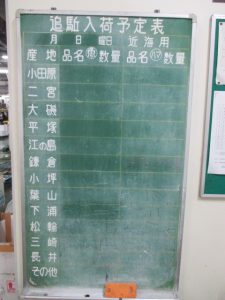 追駈入荷予定表
月 日 曜日 近海用
産地 品名 数量 品名 数量
小田原
二宮
大磯
平塚
江の島
鎌倉
小坪
葉山
下浦
松輪
三崎
長井
その他